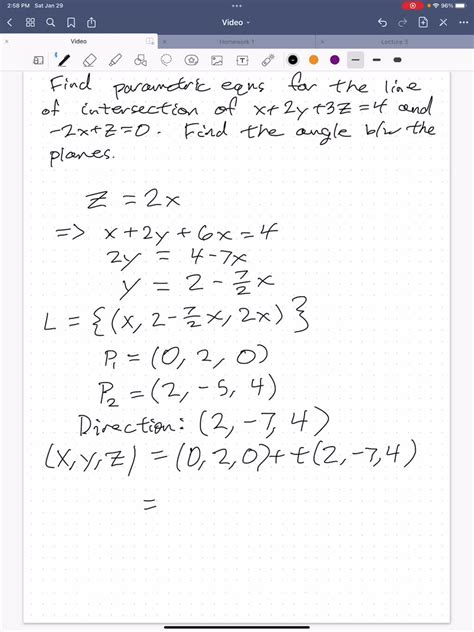 2:58 PM Sat Jan 29
96%
Video
Video
Homework 1
Lecture 3
Find parametric eqns for the line
of intersection of x+2y+3z=4 and
-2x+z=0. Find the angle b/w the
planes.
z = 2x
=> x+2y+6x=4
2y = 4-7x
y = 2-7/2x
L = {(x, 2-7/2x, 2x)}
P₁ = (0, 2, 0)
P₂ = (2, -5, 4)
Direction: (2, -7, 4)
(x, y, z) = (0, 2, 0)+t(2, -7, 4)
=